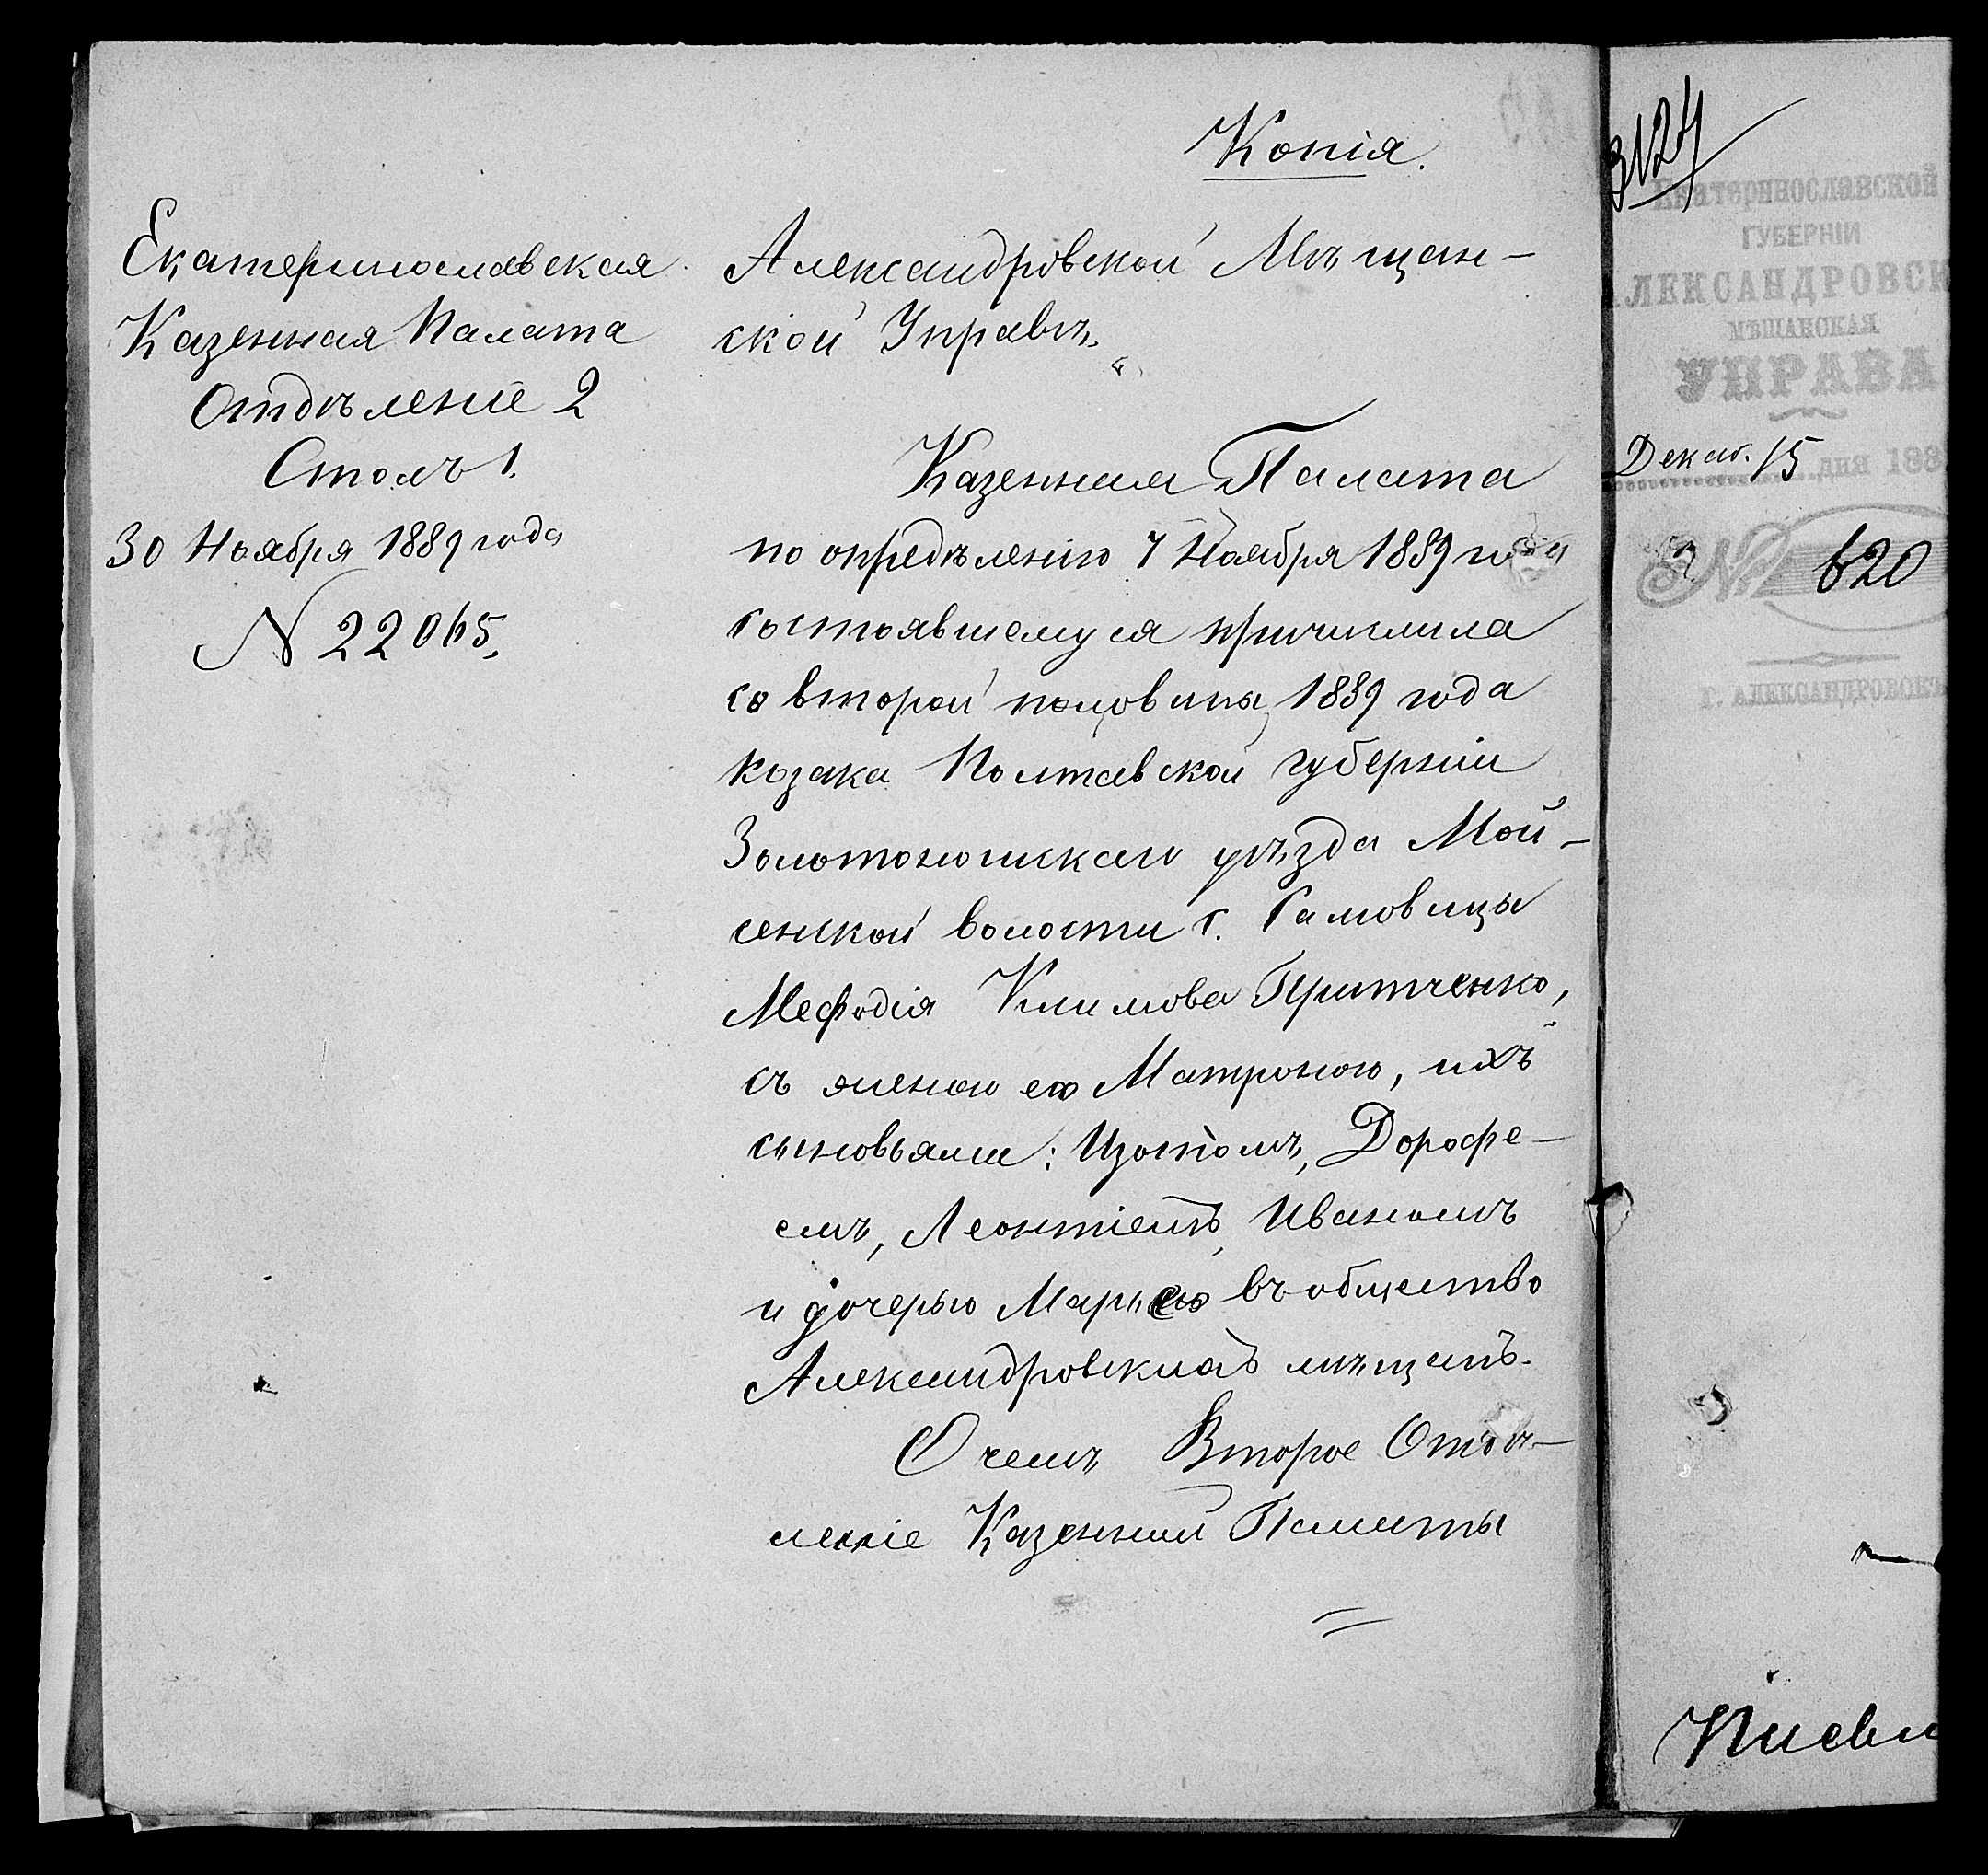 Копія.
Екатеринославская
Казенная Палата
Отдѣленіе 2
Столъ 1.
30 Ноября 1889 года
N 22065.
Александровской Мѣщан-
ской Управѣ.
Казенная Палата
по опредѣленію 7 Ноября 1889 года
состоявшемуся причислила
со второй половины 1889 года
козака Полтавской губерніи
Золотоношскаго уѣзда Мой-
сенской волости с.
Мефодія Климова Притченко,
съ женою его Матроною, ихъ
сыновьями: Изотомъ, Дорофе-
емъ, Леонтіемъ, Иваномъ
и дочерью Маріею въ общество
Александровскихъ мѣщанъ.
О чемъ Второе Отдѣ-
леніе Казенной Палаты
3124
Екатеринославской
ГУБЕРНІИ
АЛЕКСАНДРОВСК
МѢЩАНСКАЯ
УПРАВА
Декаб. 15 дня 188
№ 620
Г. АЛЕКСАНДРОВСКЪ